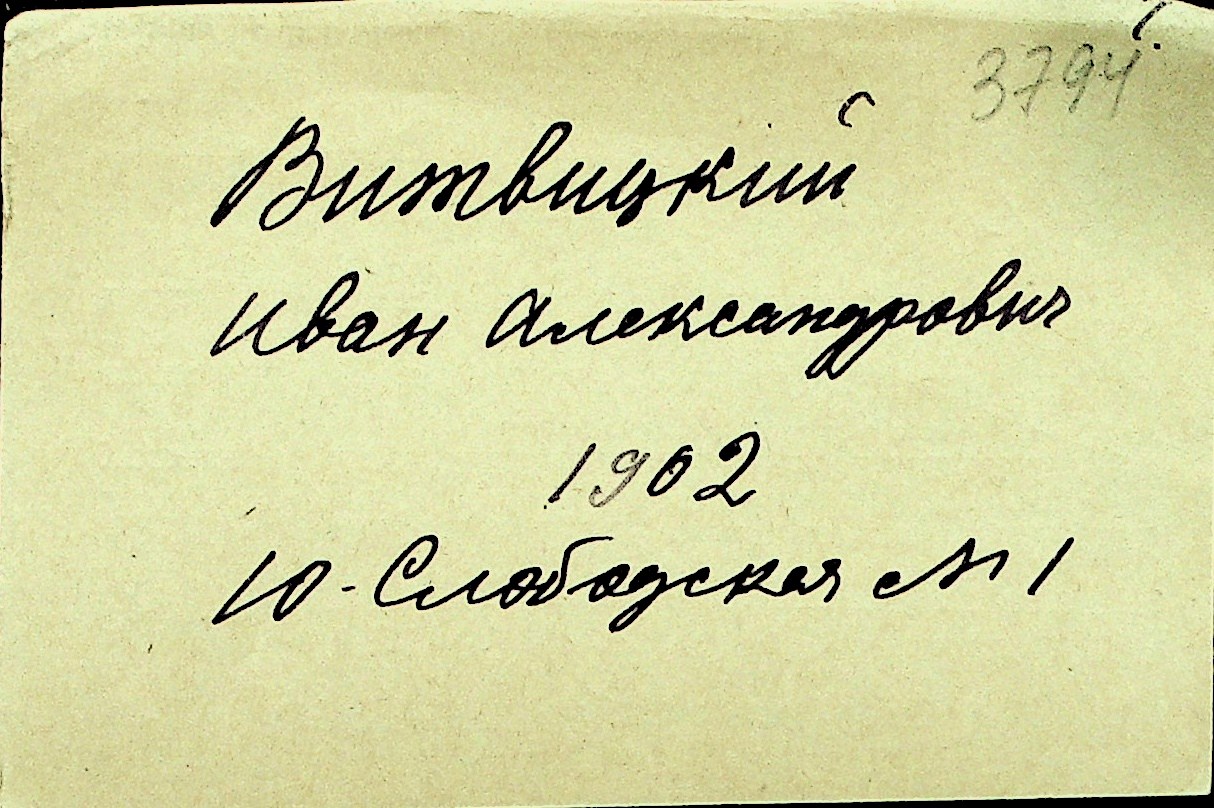 3794
Витвицкий
Иван Александрович
1902
Ю-Слободская № 1